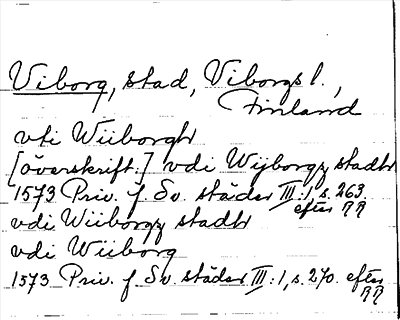 Viborg, stad, Viborgs l.,
Finland
vti Wiiborgh
[överskrift:] vdi Wijborgz stadh
1573 Priv. f. Sv. städer III:1, s. 263
efter RR
vdi Wiiborgz stadh
vdi Wiiborg
1573 Priv. f. Sv. städer III:1, s. 270. efter
RR